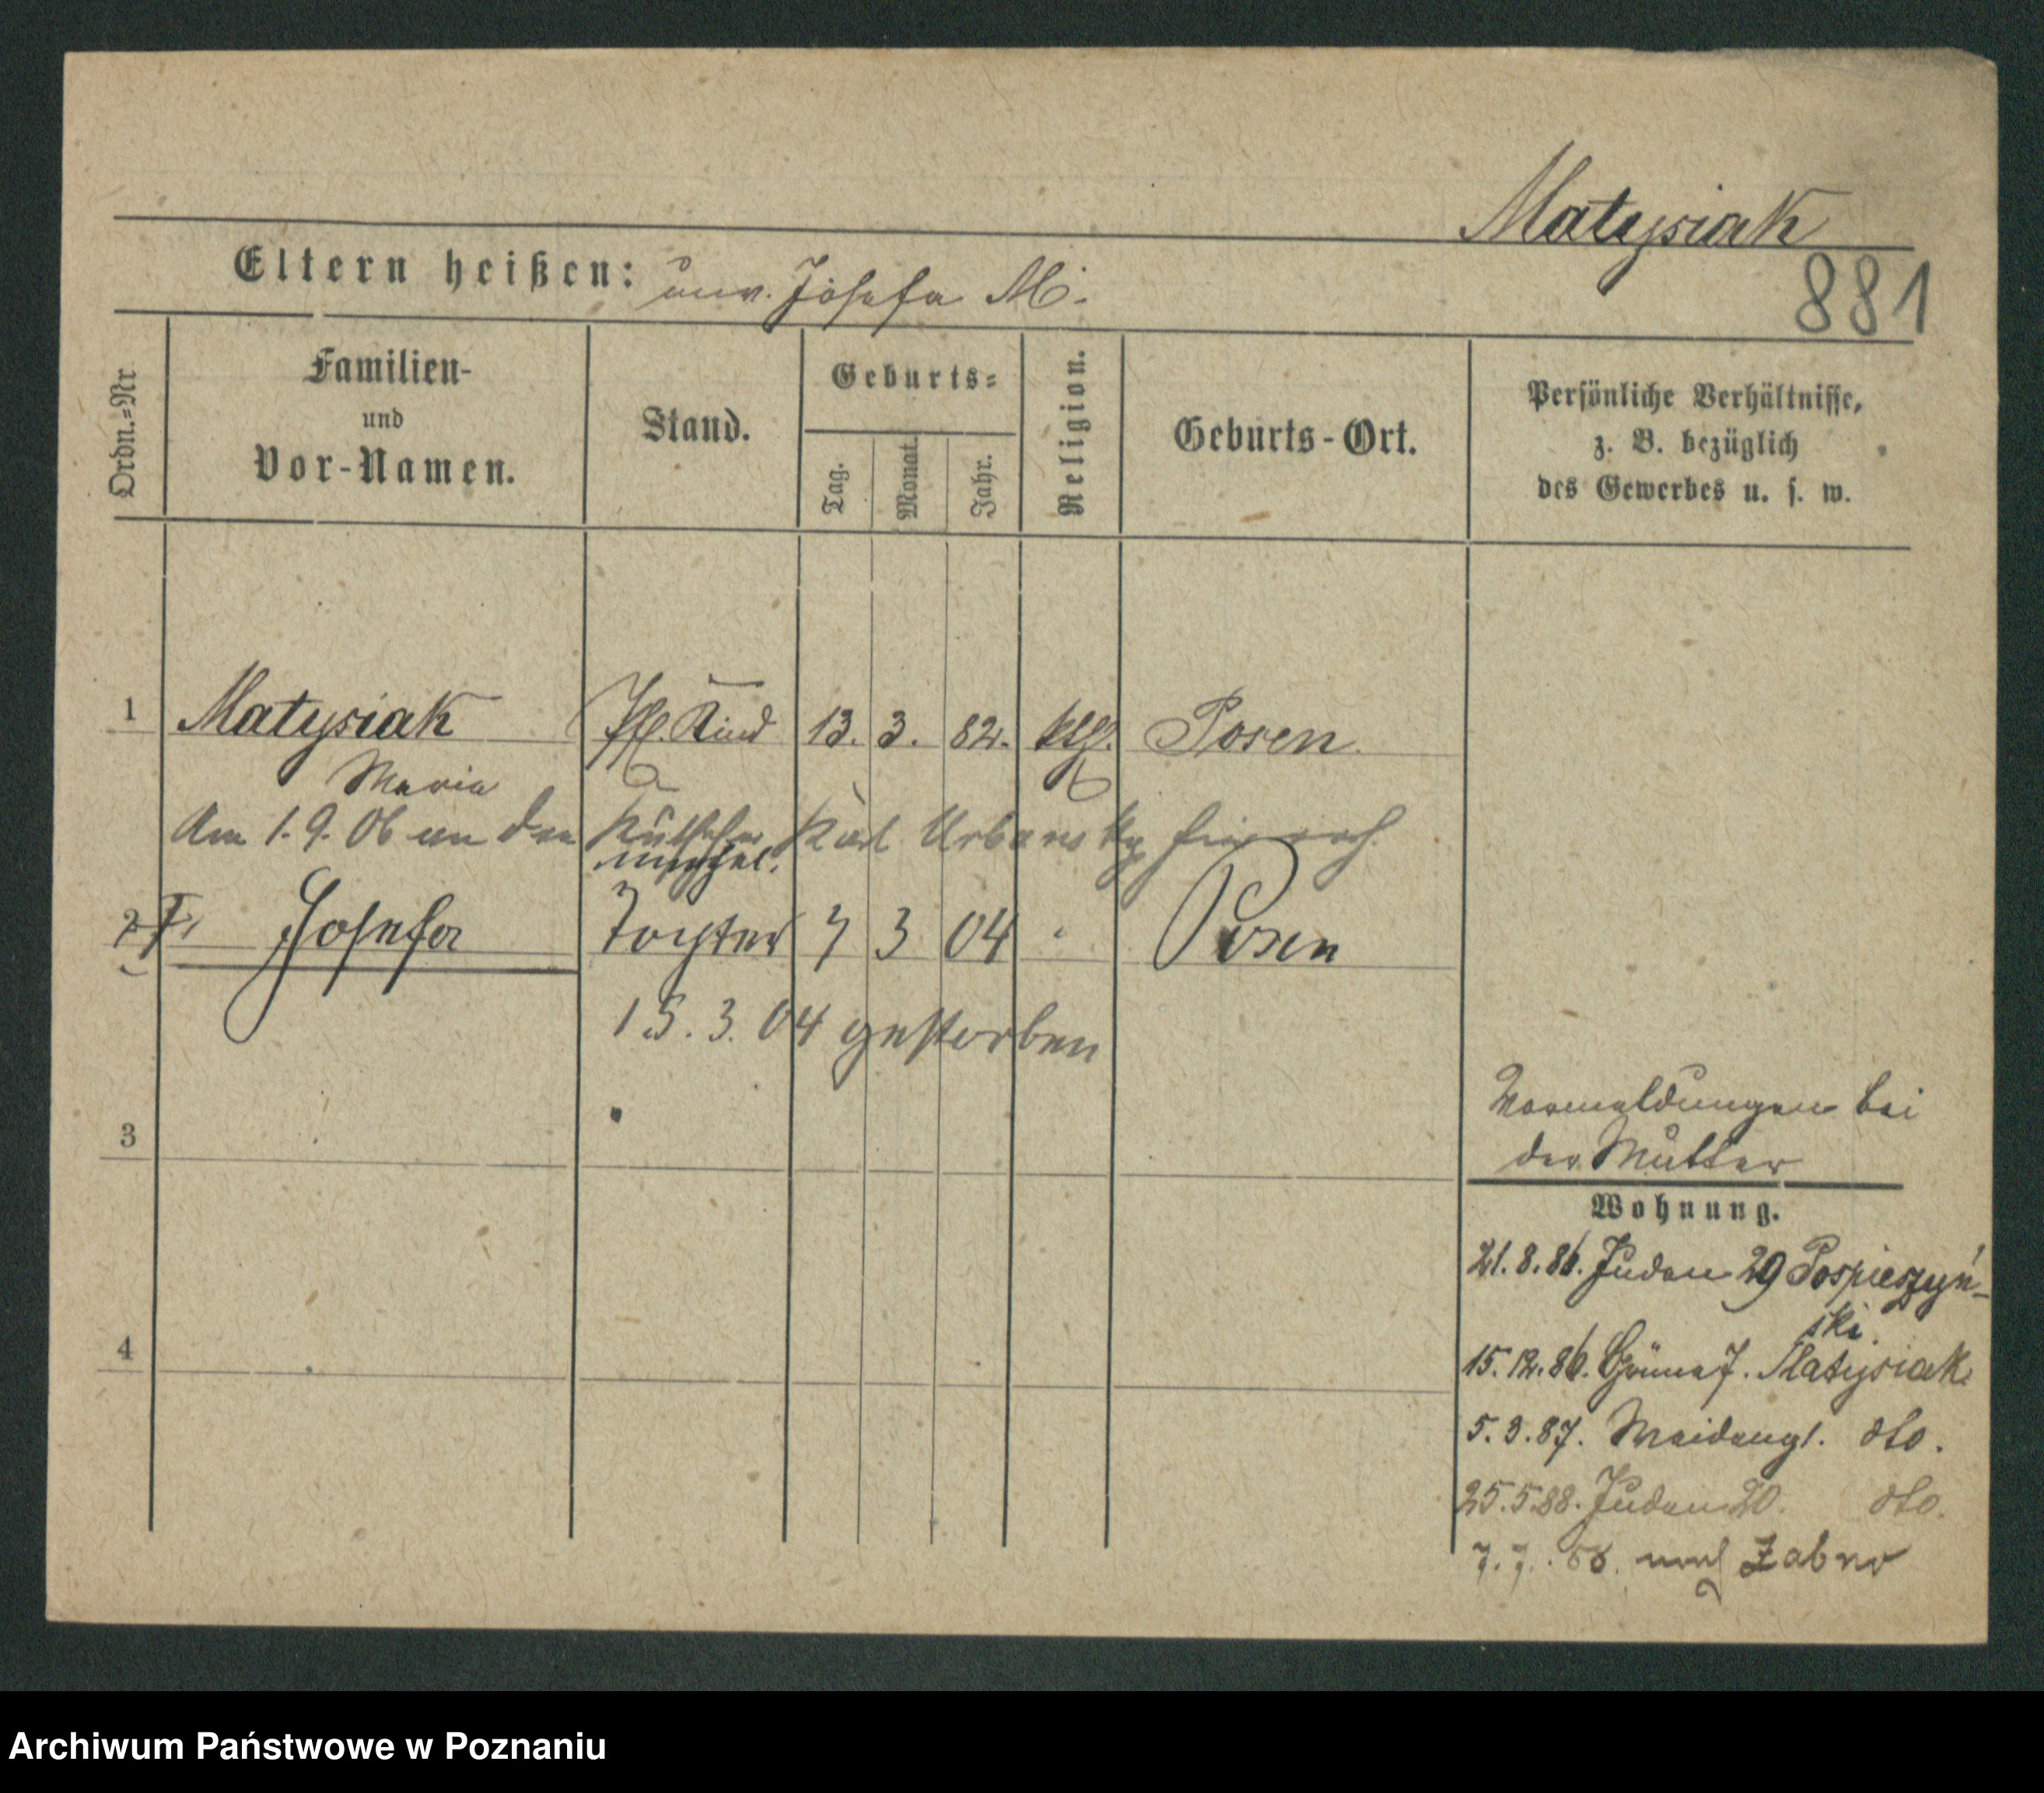 Matysiak
881
Eltern heißen: unv. Josefa M.
Ordn.=Nr
Familien-
und
Vor-Namen.
Stand.
Geburts=
Tag.
Monat.
Jahr.
Religion.
Geburts-Ort.
Persönliche Verhältnisse,
z. B. bezüglich
des Gewerbes u. s. w.
1 Matysiak Pfl. Kind 13. 3. 82. kth. Posen.
Maria
Am 1. 9. 06 an den Kutscher Karl Urbansky hier
unehel.
2 Josefa Tochter 7 3 04 " Posen
15. 3. 04 gestorben
3
4
Vormeldungen bei
der Mutter
Wohnung.
21. 8. 86. Juden 29 Pospieszyń-
ski.
15. 12. 86. Grüne 7. Matysiak
5. 3. 87. dto.
25. 5. 88. Juden 20. dto.
7. 7. 88. nach Zabno
Archiwum Państwowe w Poznaniu